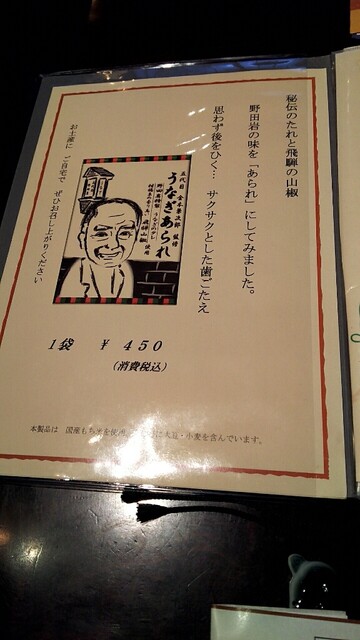 秘伝のたれと飛騨の山椒
野田岩の味を「あられ」にしてみました。
思わず後をひく… サクサクとした歯ごたえ
五代目 金本兼次郎 監修
うなぎあられ
お土産に ご自宅で ぜひお召し上がりください
1袋 ¥450
(消費税込)
本製品は 国産もち米を使用
大豆・小麦を含んでいます。